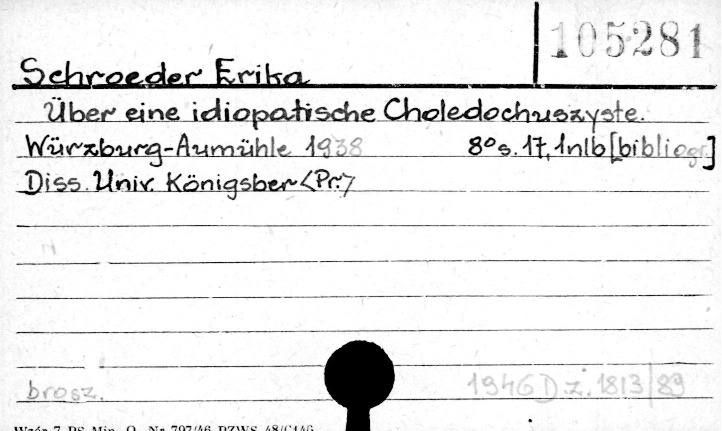 105281
Schroeder Erika
Über eine idiopatische Choledochuszyste.
Würzburg-Aumühle 1938 8º s. 17, 1nlb [bibliogr.]
Diss. Univ. Königsber <Pr.>
brosz. 1946 D.z. 1813/89
Wzór 7 PS Min. O. Nr 797/46 PZWS